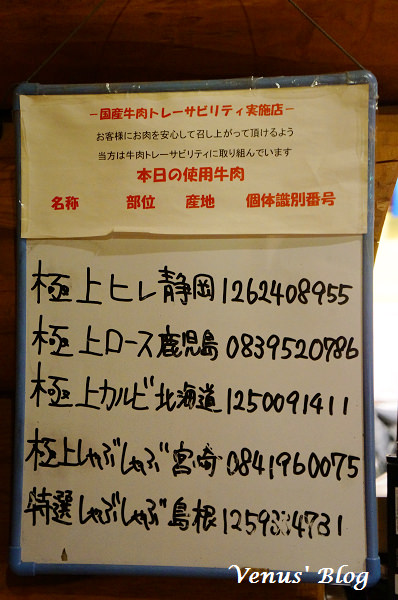 －国産牛肉トレーサビリティ実施店－
お客様にお肉を安心して召し上がって頂けるよう
当方は牛肉トレーサビリティに取り組んでいます
本日の使用牛肉
名称 部位 産地 個体識別番号
極上ヒレ静岡1262408955
極上ロース鹿児島0839520786
極上カルビ北海道1250091411
極上しゃぶしゃぶ宮崎0841960075
特選しゃぶしゃぶ島根
Venus' Blog